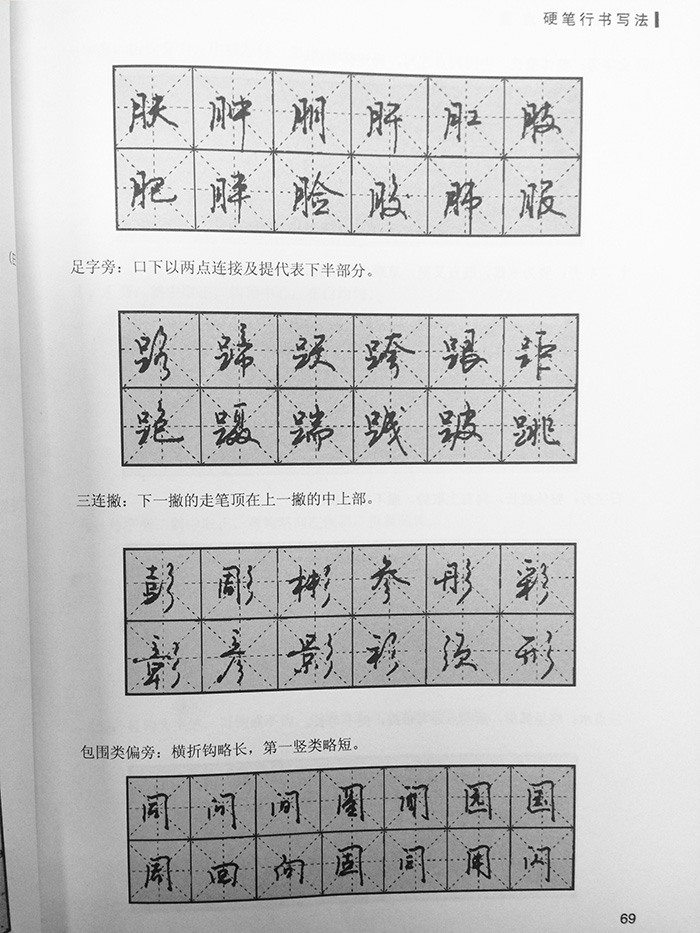 硬笔行书写法
肤肿胴肝肛肢
肥胖脸股肺服
足字旁：口下以两点连接及提代表下半部分。
路蹄跃跨跟距
跑蹑踹践跛跳
三连撇：下一撇的走笔顶在上一撇的中上部。
彭彫彬参彤彩
彰彦影衫须形
包围类偏旁：横折钩略长，第一竖类略短。
同问间圈闻园国
周回向固闫用闪
69